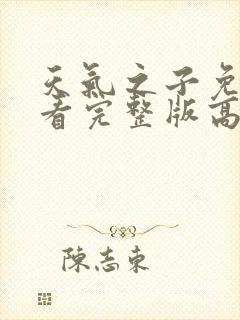 天氣之子免
看完整版高
陳志東